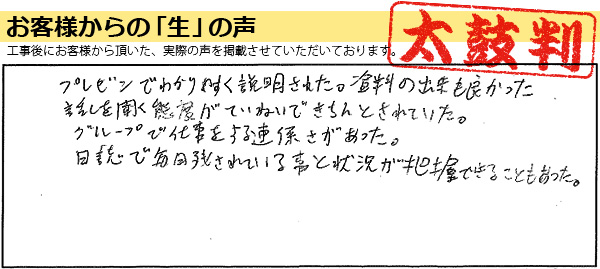 お客様からの「生」の声
工事後にお客様から頂いた、実際の声を掲載させていただいております。
太鼓判
プレゼンでわかりやすく説明された。資料の出来も良かった
話しを聞く態度がていねいできちんとされていた。
グループで仕事をする連係さがあった。
日誌で毎日残されている事と状況が把握できることもあった。